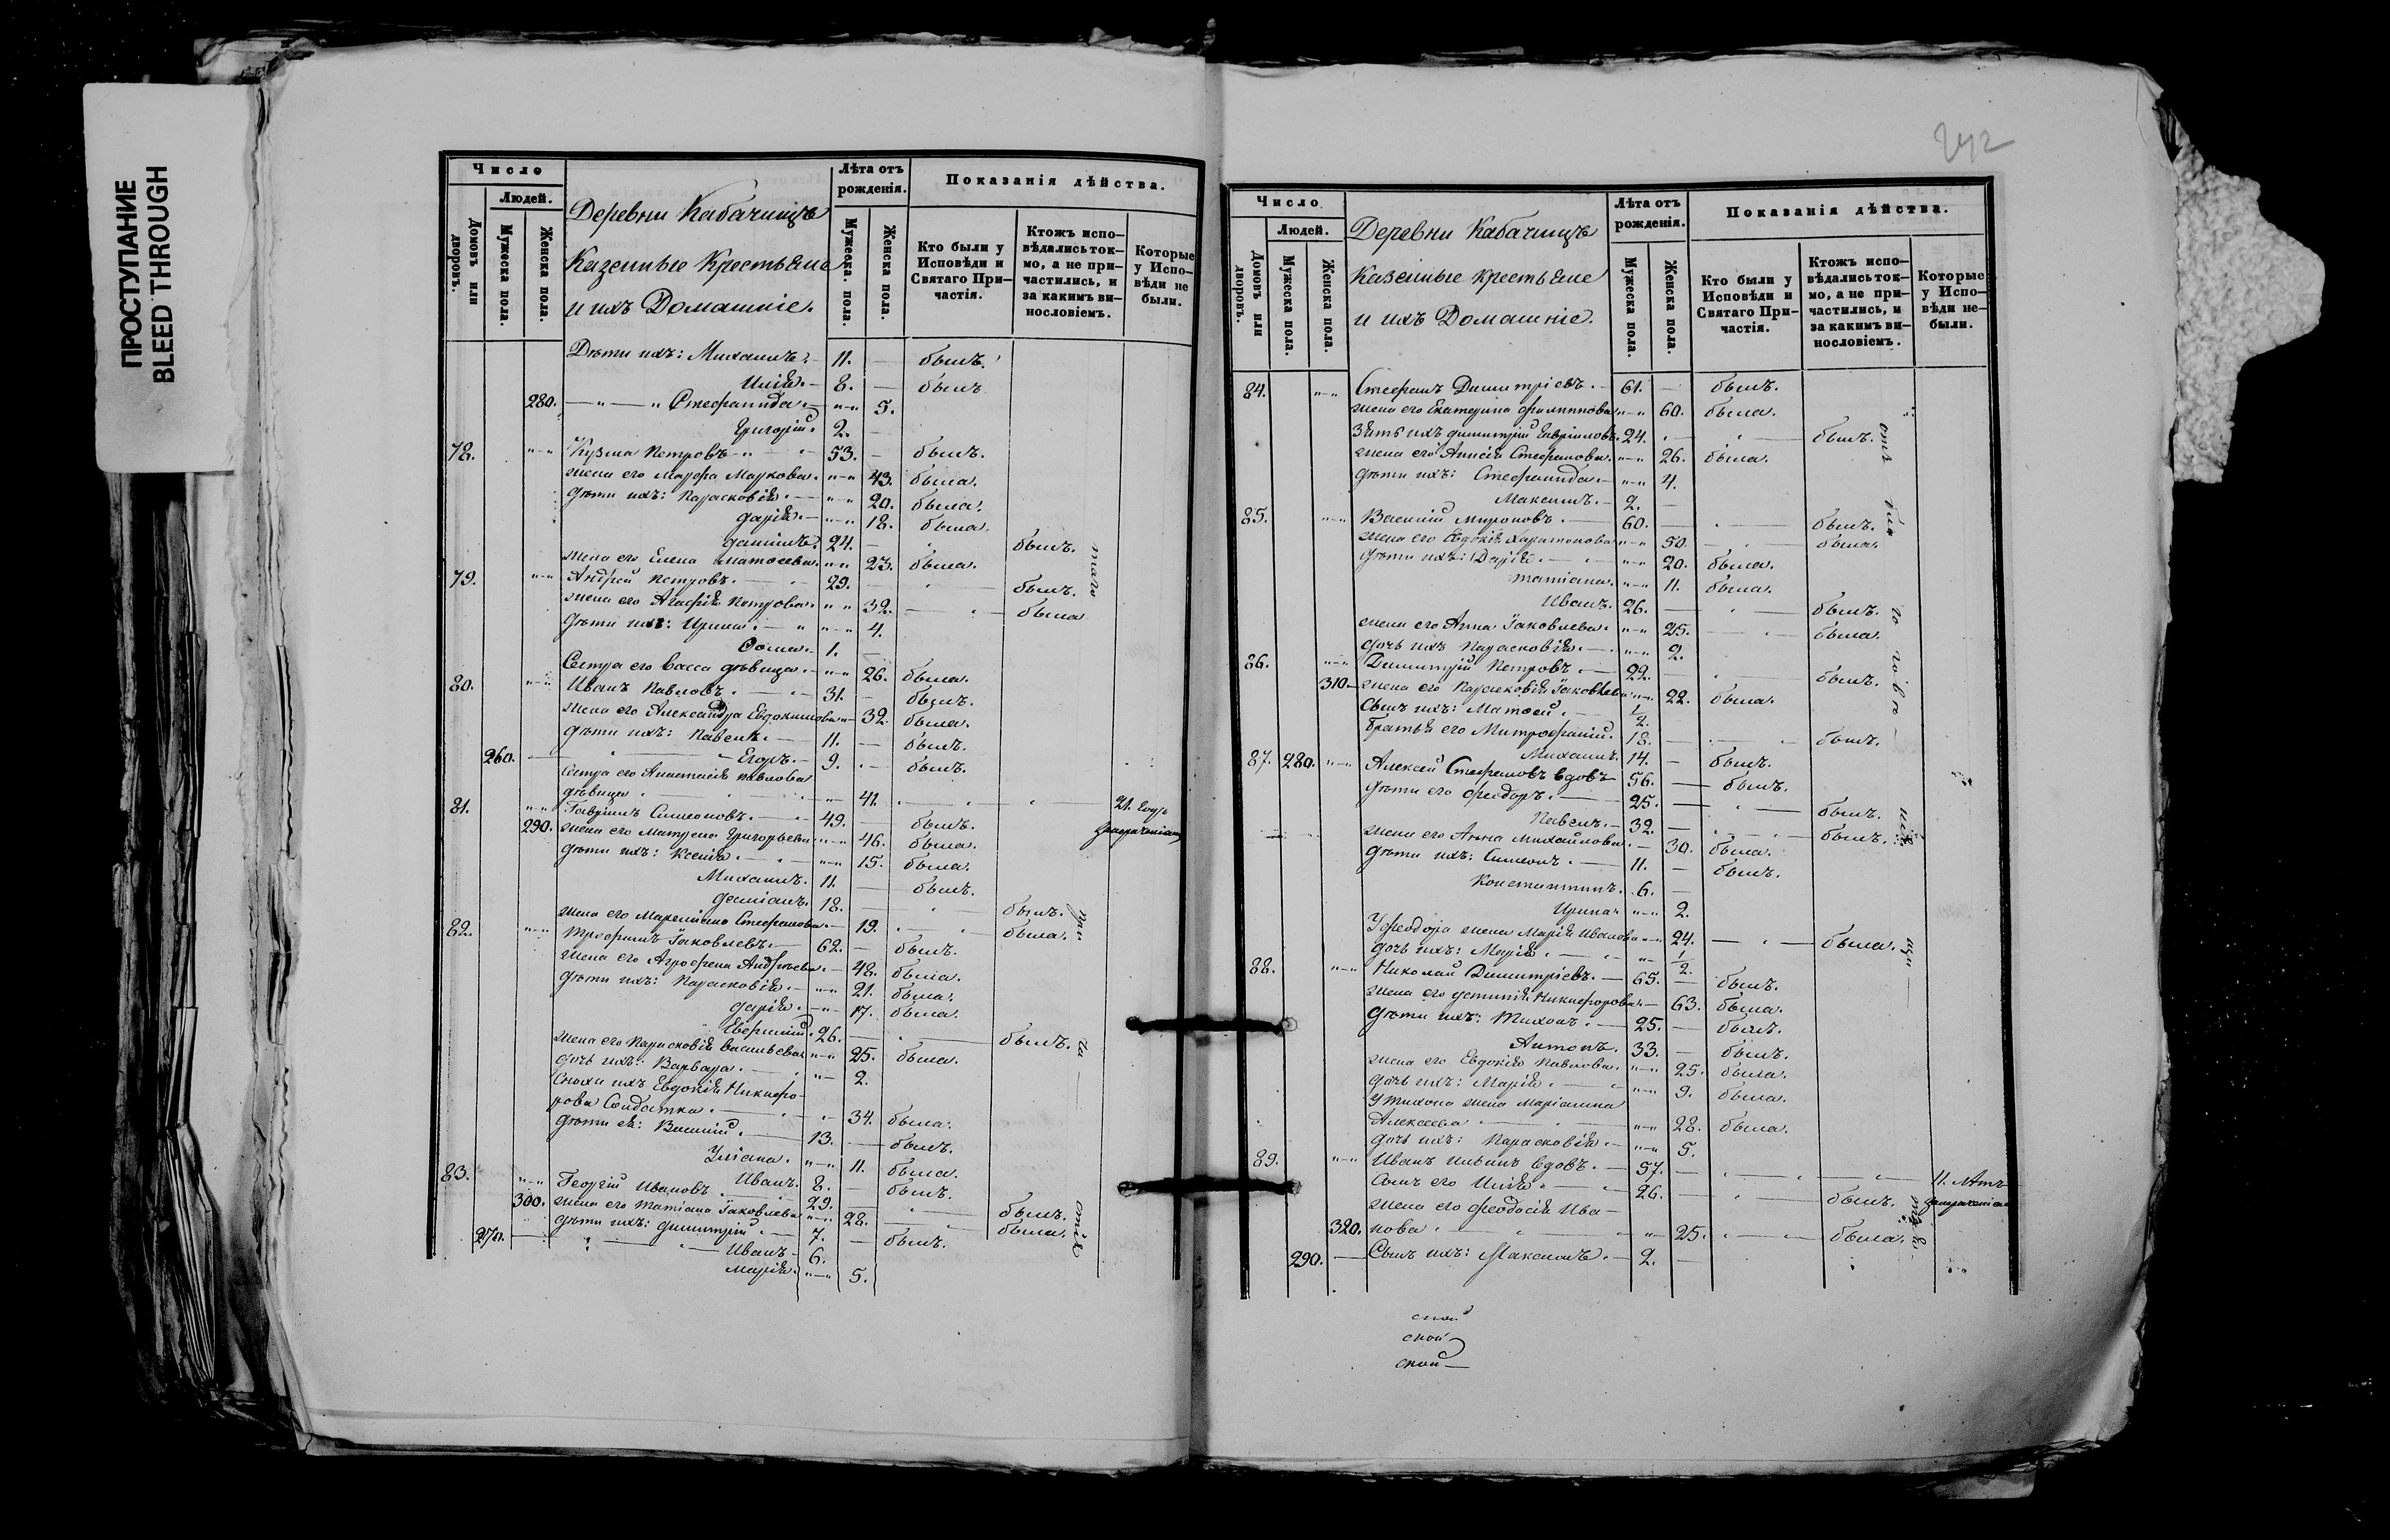 ПРОСТУПАНИЕ
BLEED THROUGH
Число
Людей.
Домовъ или дворовъ.
Мужеска пола.
Женска пола.
Деревни Кабачищъ
Казенные Крестьяне
и ихъ Домашніе.
Лѣта отъ рожденія.
Мужеска. пола.
Женска пола.
Показанія дѣйства.
Кто были у Исповѣди и Святаго При-частія.
Ктожъ испо-вѣдались ток-мо, а не при-частились, и за какимъ ви-нословіемъ.
Которые у Испо-вѣди не были.
Дѣти ихъ: Михаилъ. 11. — былъ.
Илія. 8. — былъ
280. Стефанида. 5.
Григорій. 2. —
78. Кузма Петровъ 53. — былъ.
жена его Марфа Маркова. 43. была.
дѣти ихъ: Параскевія. 20. была.
Дарія. 18. была.
Даніилъ. 24. — былъ.
жена его Елена Матѳеева. 23. была.
79. Андрей Петровъ. 29. — былъ.
жена его Агафія Петрова. 32. — была
дѣти ихъ: Ирина. 4.
Ѳома. 1. —
Сестра его Васса дѣвица. 26. была.
80. Иванъ Павловъ. 31. — былъ.
жена его Александра Евдокимова 32. была.
дѣти ихъ: Павелъ. 11. — былъ.
260. Егоръ. 9. — былъ.
Сестра его Анастасія Павлова
дѣвица 41. 21. годъ
81. Гавріилъ Симеоновъ. 49. — былъ.
290. жена его Матрена Григорьева 46. была.
дѣти ихъ: Ксенія. 15. была.
Михаилъ. 11. — былъ.
Даміанъ. 18. — былъ.
жена его Мареміана Стефанова. 19. была.
82. Трофимъ Іаковлевъ. 62. — былъ.
жена его Агрофена Андреева. 48. была.
дѣти ихъ: Параскевія. 21. была.
Дарія. 17. была.
26. — былъ.
жена его Параскевія Васильева 25. была.
дочь ихъ: Варвара. 2.
Сноха ихъ Евдокія Никифо-
рова Солдатка. 34. была.
дѣти ея: Василій. 13. — былъ.
Уліана. 11. была.
Иванъ. 8. былъ.
83. Георгій Ивановъ 29. — былъ.
300. жена его Татіана Іаковлева 28. была.
дѣти ихъ: Димитрій 7. — былъ.
270. Иванъ 6.
Марія. 5.
242
Число
Людей.
Домовъ или дворовъ.
Мужеска пола.
Женска пола.
Деревни Кабачищъ
Казенные Крестьяне
и ихъ Домашніе.
Лѣта отъ рожденія.
Мужеска пола.
Женска пола.
Показанія дѣйства.
Кто были у Исповѣди и Святаго При-частія.
Ктожъ испо-вѣдались ток-мо, а не при-частились, и за какимъ ви-нословіемъ.
Которые у Испо-вѣди не-были.
84. Стефанъ Димитріевъ. 61. — былъ.
жена его Екатерина Филиппова 60. была.
Зять ихъ Димитрій Гавріиловъ. 24. — былъ.
жена его Анисія Стефанова. 26. была.
дѣти ихъ: Стефанида. 4.
Максимъ. 2. —
85. Василій Мироновъ. 60. — былъ.
жена его Евдокія Харитонова 50. была.
дѣти ихъ: Дарія. 20. была.
Татіана. 11. была.
Иванъ. 26. — былъ.
жена его Анна Іаковлева. 25. была.
дочь ихъ Параскевія. 2.
86. Димитрій Петровъ. 22. — былъ.
310. жена его Параскевія Іаковлева 22. была.
Сынъ ихъ: Матѳей. 1/2.
братья его Митрофаній. 18. — былъ.
Михаилъ. 14. — былъ.
87. 280. Алексей Стефановъ вдовъ 56. — былъ.
дѣти его Феодоръ. 25. — былъ.
Павелъ. 32. — былъ.
жена его Анна Михайлова. 30. была.
дѣти ихъ: Симеонъ. 11. — былъ.
Константинъ. 6. —
Ирина 2.
У Феодора жена Марія Иванова 24. — была.
дочь ихъ: Марія. 1/2.
88. Николай Димитріевъ. 65. — былъ.
жена его Устинія Никифорова. 63. была.
дѣти ихъ: Тихонъ. 25. — былъ.
Антонъ. 33. — былъ.
жена его Евдокія Павлова. 25. была.
дочь ихъ: Марія. 9. была.
У Тихона жена Маріамна
Алексеева 28. была.
дочь ихъ: Параскевія. 5.
89. Иванъ Ильинъ вдовъ. 57. 11. лѣтъ
Сынъ его Илія. 26. — былъ.
жена его Феодосія Ива-
320. нова 25. была.
290. Сынъ ихъ: Максимъ. 2. —
ской
ской
ской